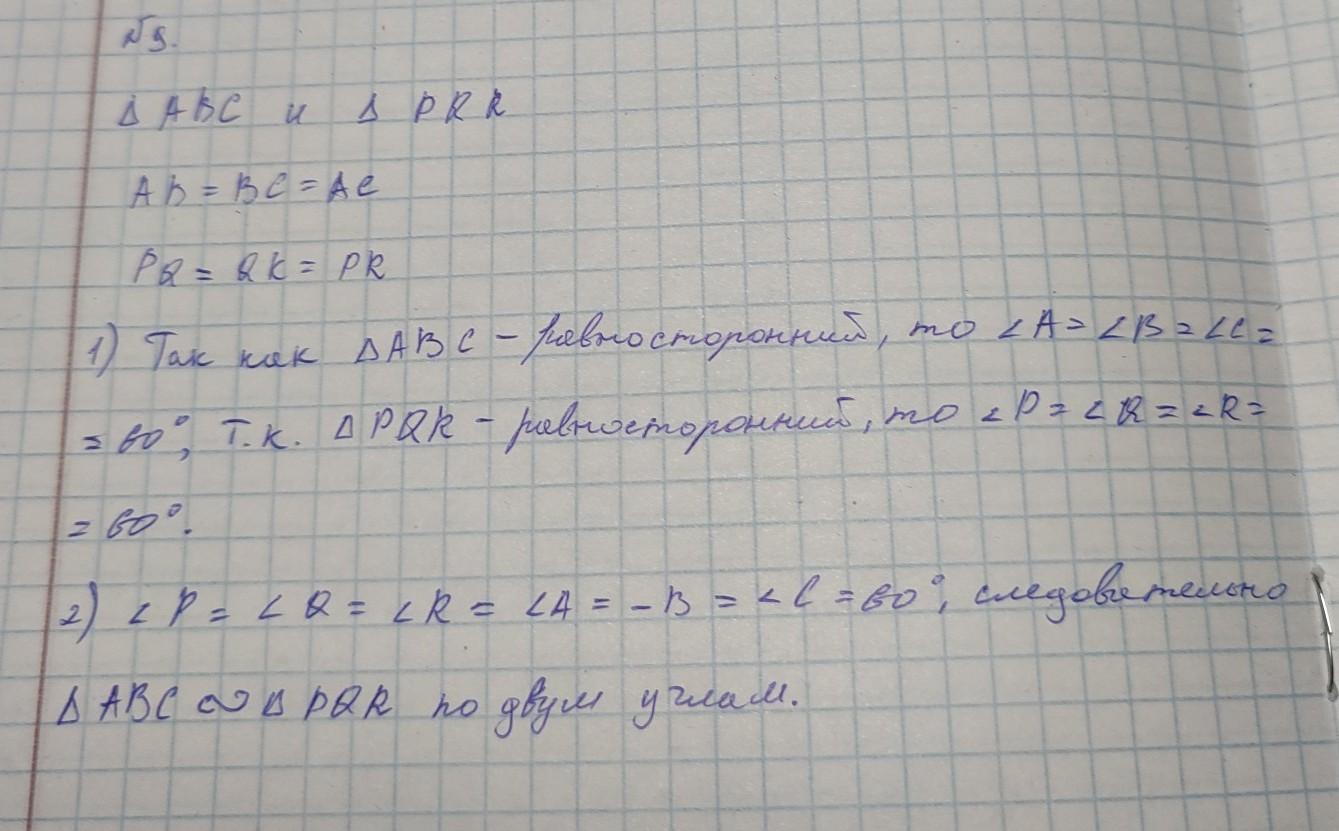 №9.
Δ ABC и Δ PRR
AB = BC = AC
PQ = QR = PR
1) Так как ΔABC – равносторонний, то ∠A = ∠B = ∠C =
= 60°, Т.к. ΔPQR – равносторонний, то ∠P = ∠Q = ∠R =
= 60°.
2) ∠P = ∠Q = ∠R = ∠A = –B = ∠C = 60°, следовательно
Δ ABC ∾ Δ PQR по двум углам.